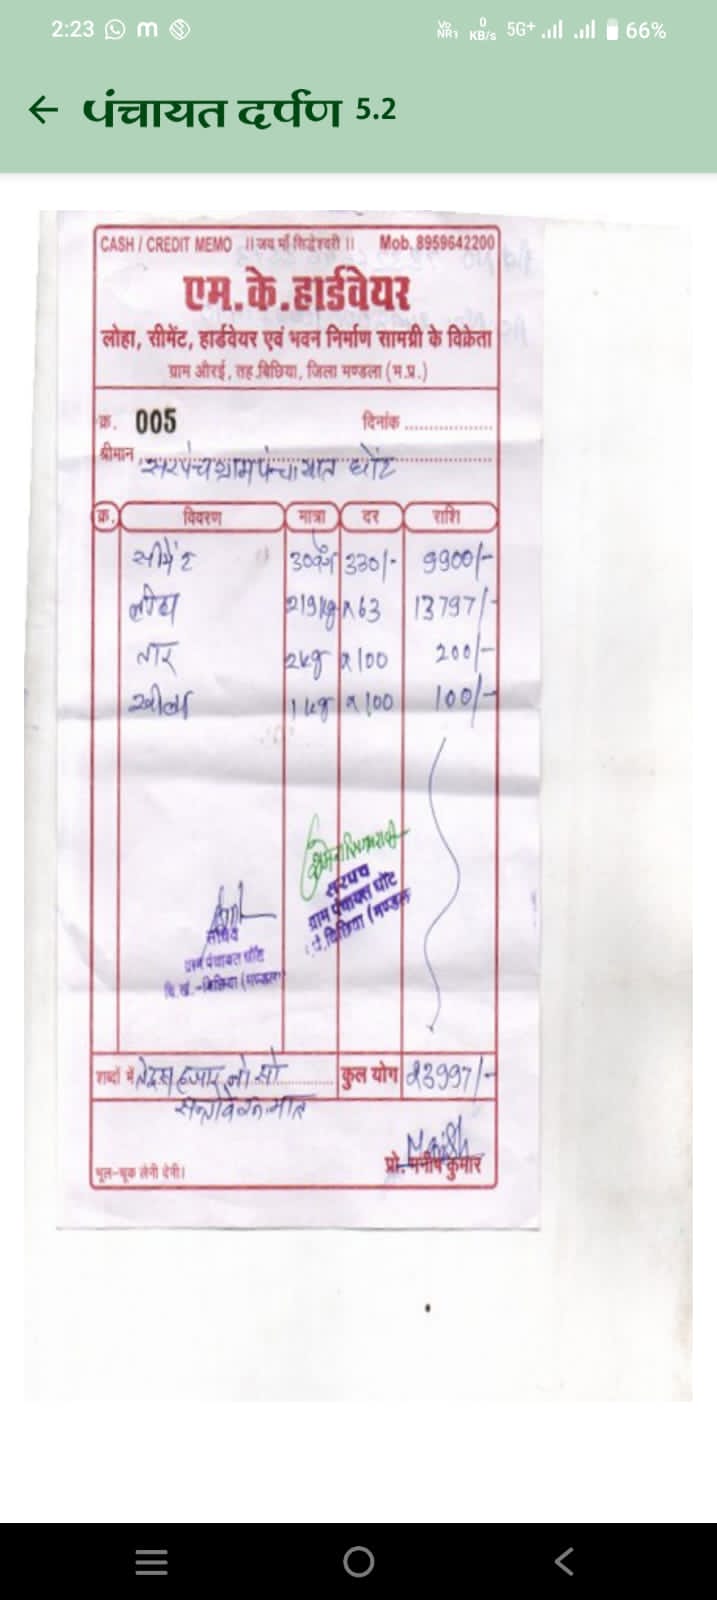 2:23 m Vo NR1 0 KB/s 5G+ 66%
← पंचायत दर्पण 5.2
CASH / CREDIT MEMO ॥ जय माँ सिद्धेश्वरी ॥ Mob. 8959642200
एम.के.हार्डवेयर
लोहा, सीमेंट, हार्डवेयर एवं भवन निर्माण सामग्री के विक्रेता
ग्राम औरई, तह.बिछिया, जिला मण्डला (म.प्र.)
क्र. 005 दिनांक ..................
श्रीमान सरपंच ग्राम पंचायत घोंट
क्र. विवरण मात्रा दर राशि
सीमेंट 30 बैग 330/- 9900/-
लोहा 219kg x 63 13797/-
तार 2kg x 100 200/-
खीला 1 kg x 100 100/-
सरपंच
ग्राम पंचायत घोंट
बिछिया (मण्डला
सचिव
ग्राम पंचायत घोंट
वि.ख.-बिछिया (मण्डला)
शब्दों में तेइस हजार नो सो कुल योग 23997/-
सन्तानवे मात्र
Manish
भूल-चूक लेनी देनी। प्रो. मनीष कुमार